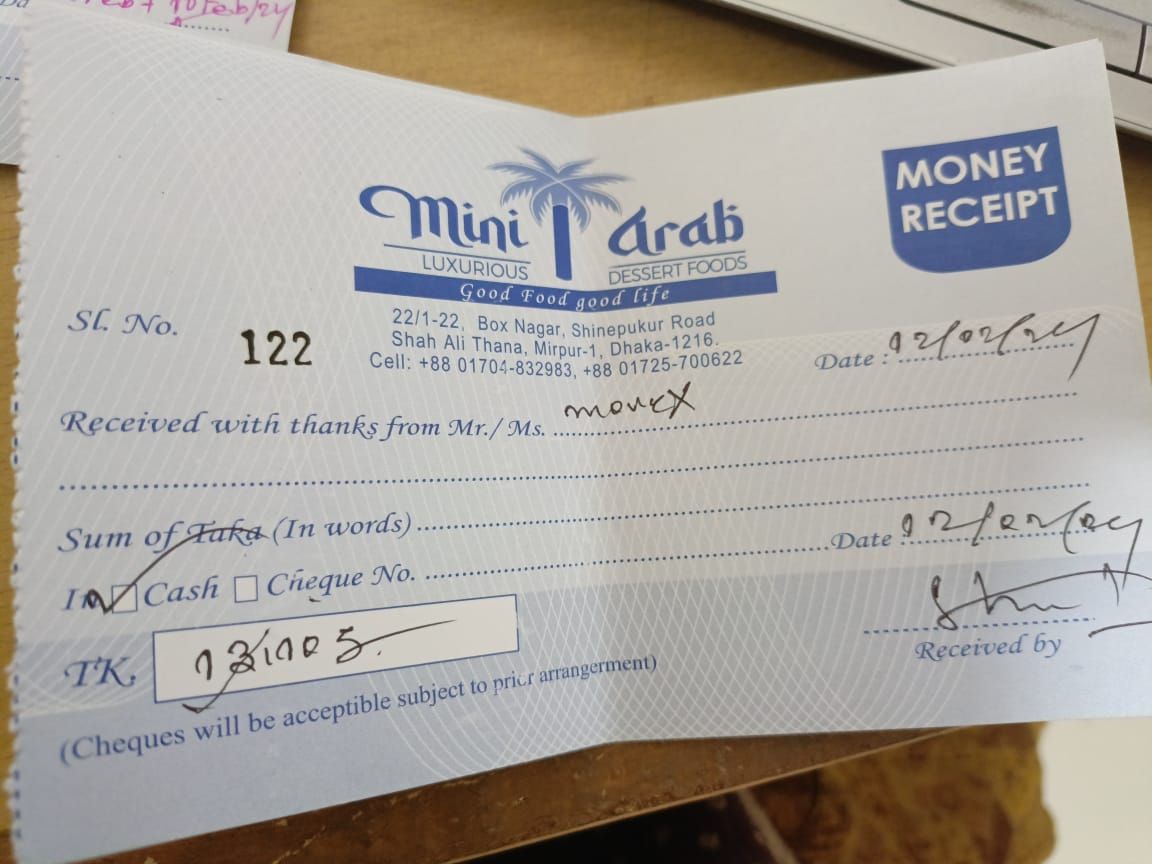 10 Feb/24
mini arab
LUXURIOUS DESSERT FOODS
Good Food good life
MONEY
RECEIPT
22/1-22, Box Nagar, Shinepukur Road
Shah Ali Thana, Mirpur-1, Dhaka-1216.
Cell: +88 01704-832983, +88 01725-700622
Sl. No. 122
Date : 12/02/24
Received with thanks from Mr./ Ms. monex
Sum of Taka (In words)
In Cash Cheque No. Date 12/02/24
TK.
Received by
(Cheques will be acceptible subject to prior arrangerment)